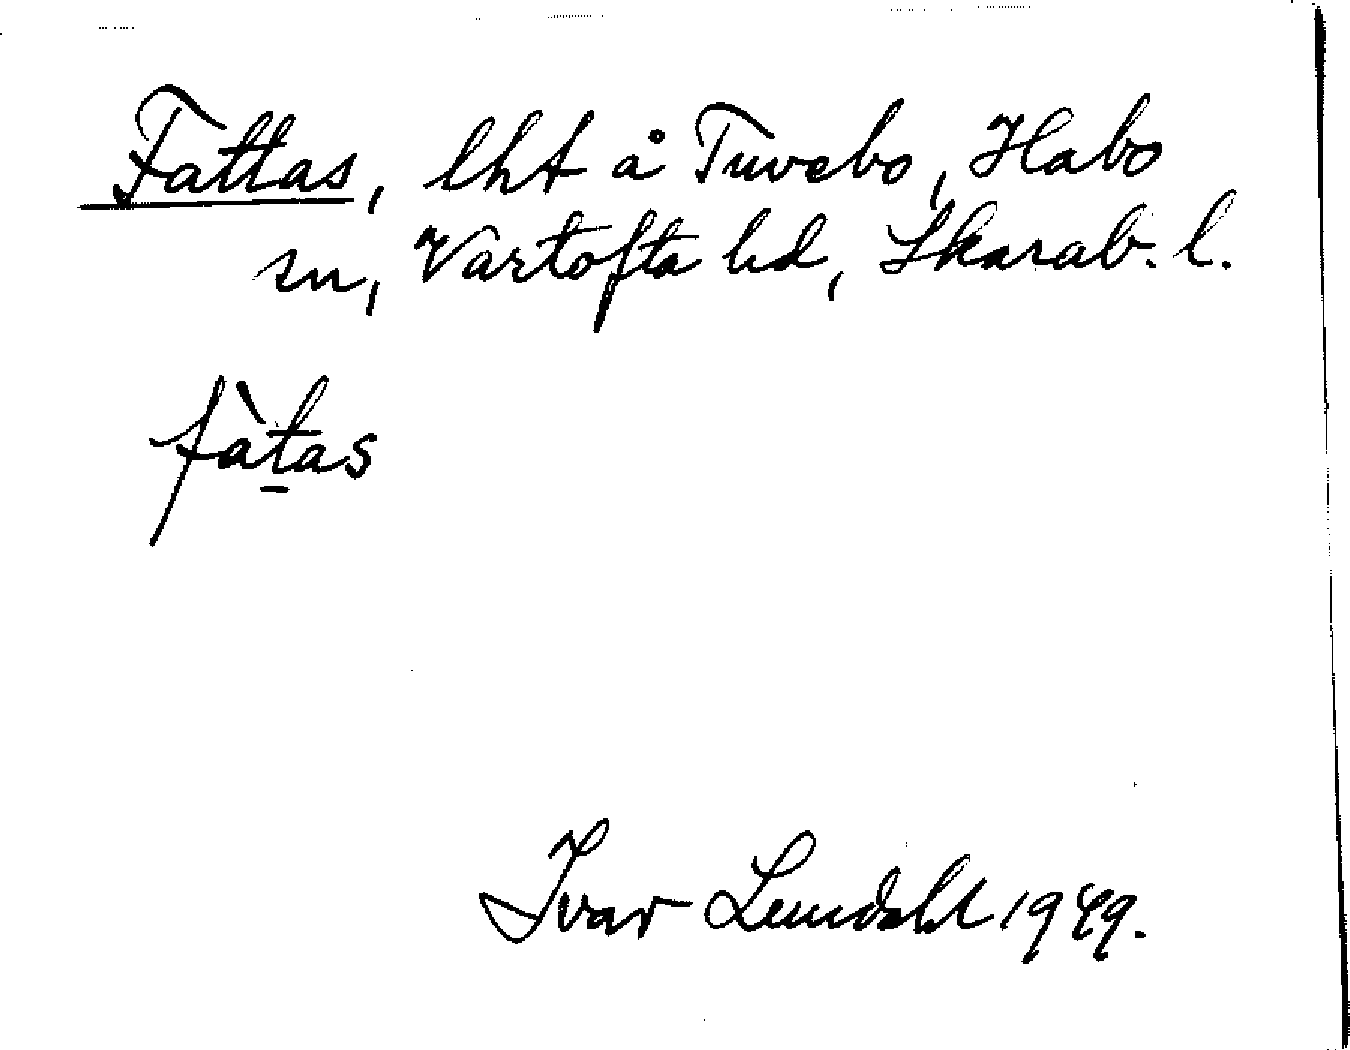 Fattas, lht å Tuvebo, Habo
sn, Vartofta hd, Skarab. l.
fàt̠as
Ivar Lundahl 1949.